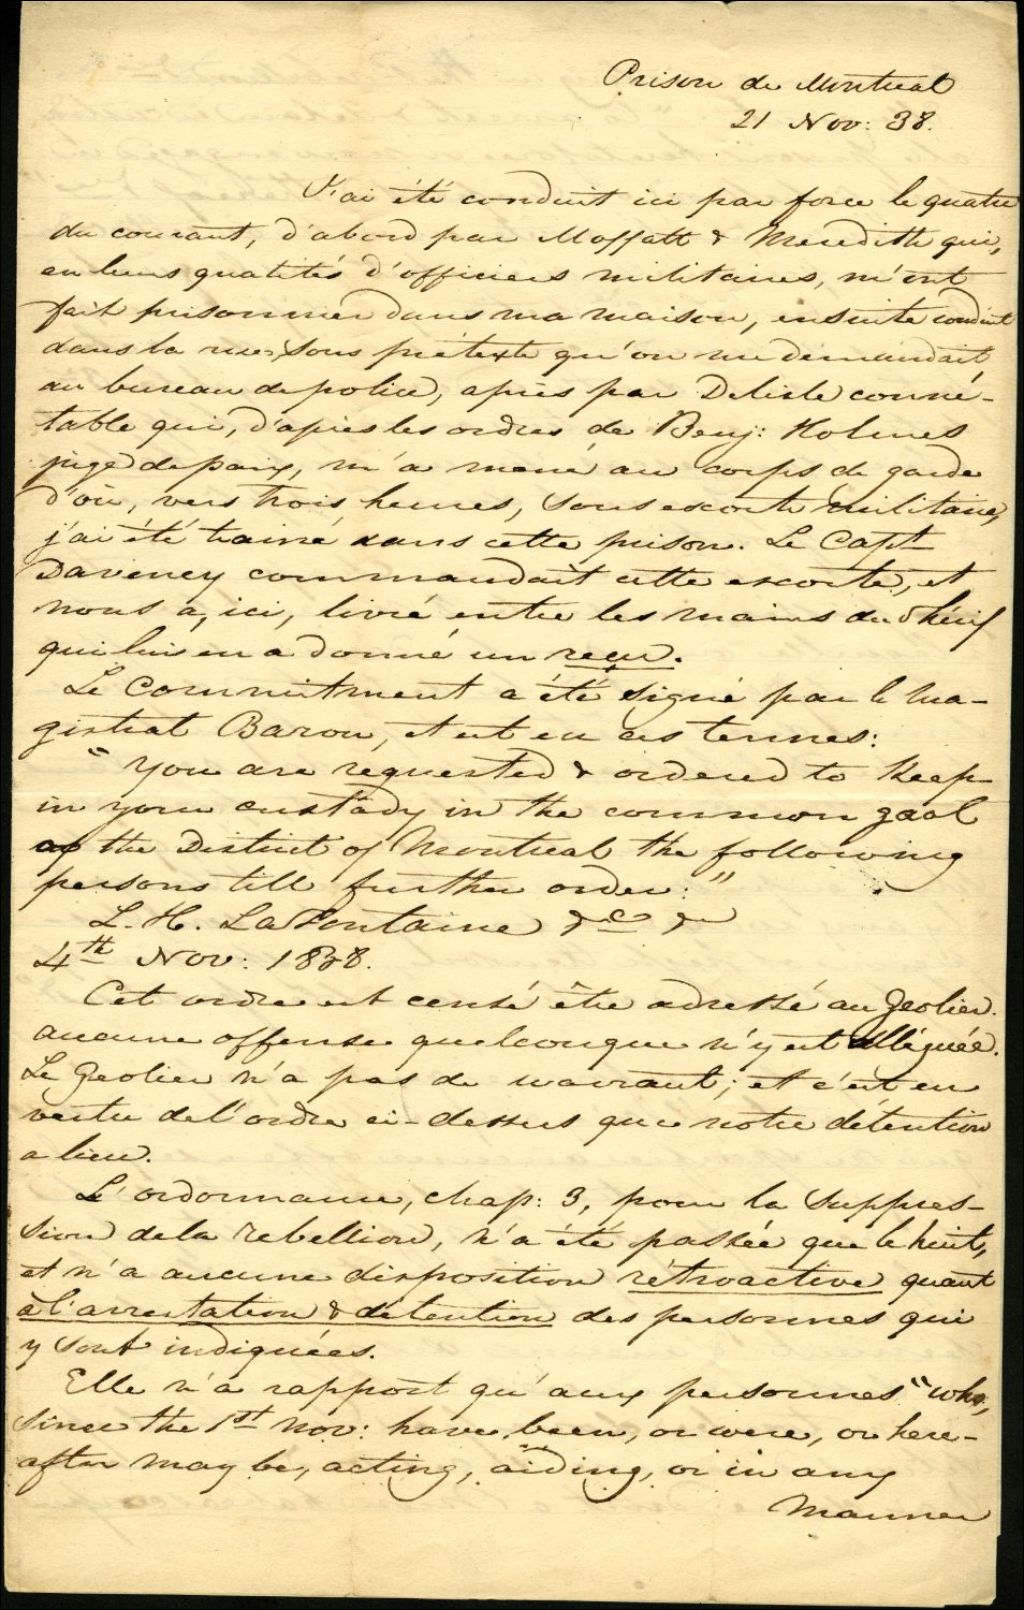 Prison de Montreal
21 Nov: 38.
J'ai été conduit ici par force le quatre
du courant, d'abord par Moffatt & Meredith qui,
en leurs qualités d'officiers militaires, m'ont
fait prisonnier dans ma maison, ensuite conduit
dans la rue, sous prétexte qu'on me demandait
au bureau de police, après par Delisle conné-
table qui, d'après les ordres de Benj: Holmes
juge de paix, m'a mené au corps de garde
d'où, vers trois heures, sous escorte militaire,
j'ai été trainé dans cette prison. Le Capt
Daveney commandait cette escorte, et
nous a, ici, livré entre les mains du Shérif
qui lui en a donné un reçu.
Le Commitment a été signé par le ma-
gistrat Baron, et est en ces termes:
"You are requested & ordered to keep
in your custody in the common gaol
of the District of Montreal the following
persons till further order:"
L. H. LaFontaine &c &c
4th Nov: 1838.
Cet ordre est censé être adressé au Geolier.
aucune offense quelconque n'y est alléguée.
Le Geolier n'a pas de warrant; et c'est en
vertu de l'ordre ci-dessus que notre détention
a lieu.
L'ordonnance, chap: 3, pour la suppres-
sion de la rebellion, n'a été passée que le huit,
et n'a aucune disposition rétroactive quant
à l'arrestation & détention des personnes qui
y sont indiquées.
Elle n'a rapport qu'aux personnes "who,
since the 1st Nov: have been, or were, or here-
after may be, acting, aiding, or in any
manner